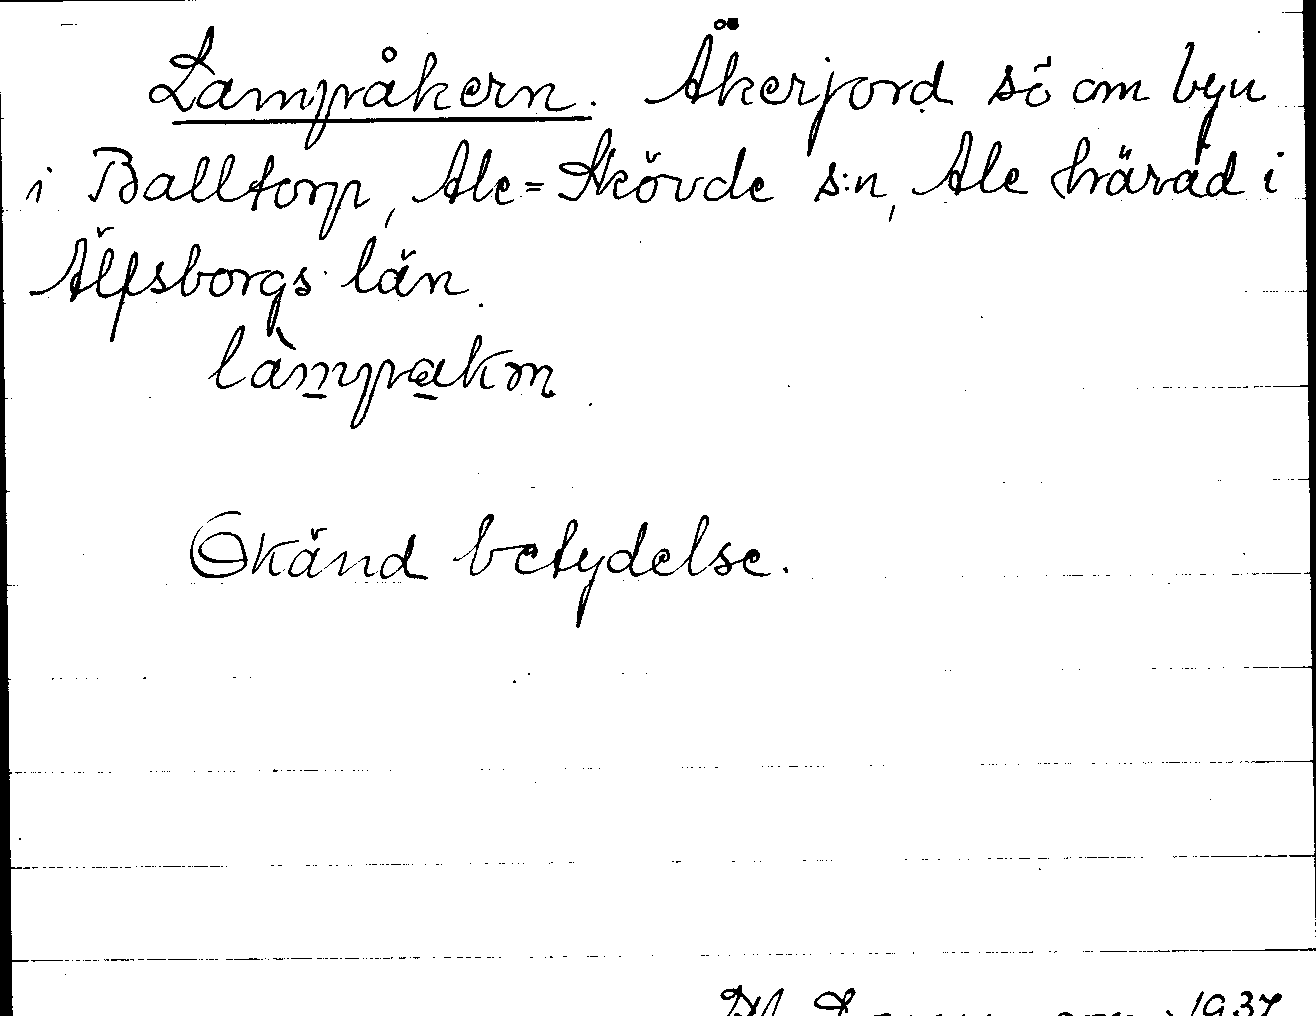 Lampåkern. Åkerjord sö om byn
i Balltorp, Ale=Skövde s:n, Ale härad i
Älfsborgs län.
làmpakn
Okänd betydelse.
1937